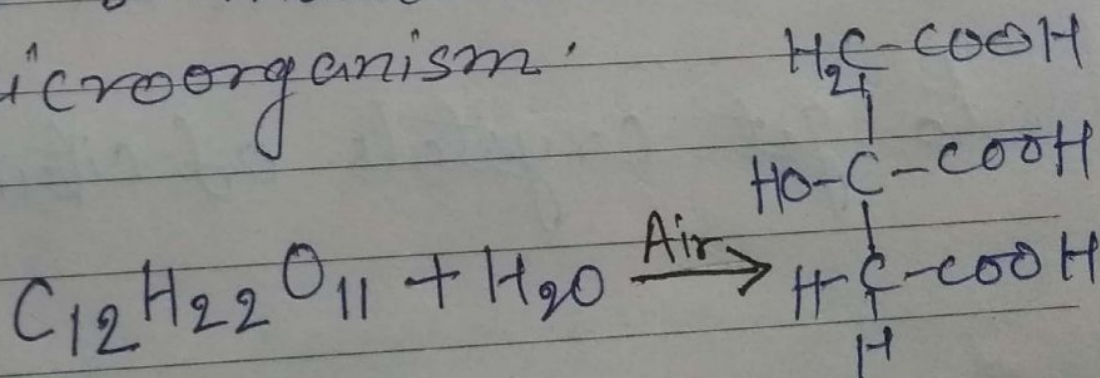 icroorganism.
H2C-COOH
HO-C-COOH
C12H22O11 + H2O Air→ H-C-COOH
H